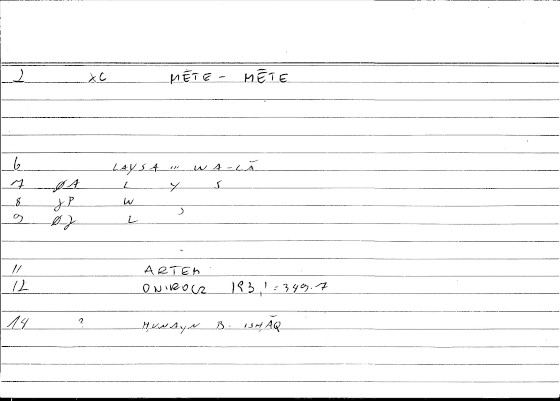 2 XC MĒTE - MĒTE
6 LAYSA ... WA-LĀ
7 ØA L Y S
8 JP W
9 ØJ L ʾ
11 ARTEM
12 ONIROCR 193,1 = 349.7
14 ? ḤUNAYN B. ISḤĀQ